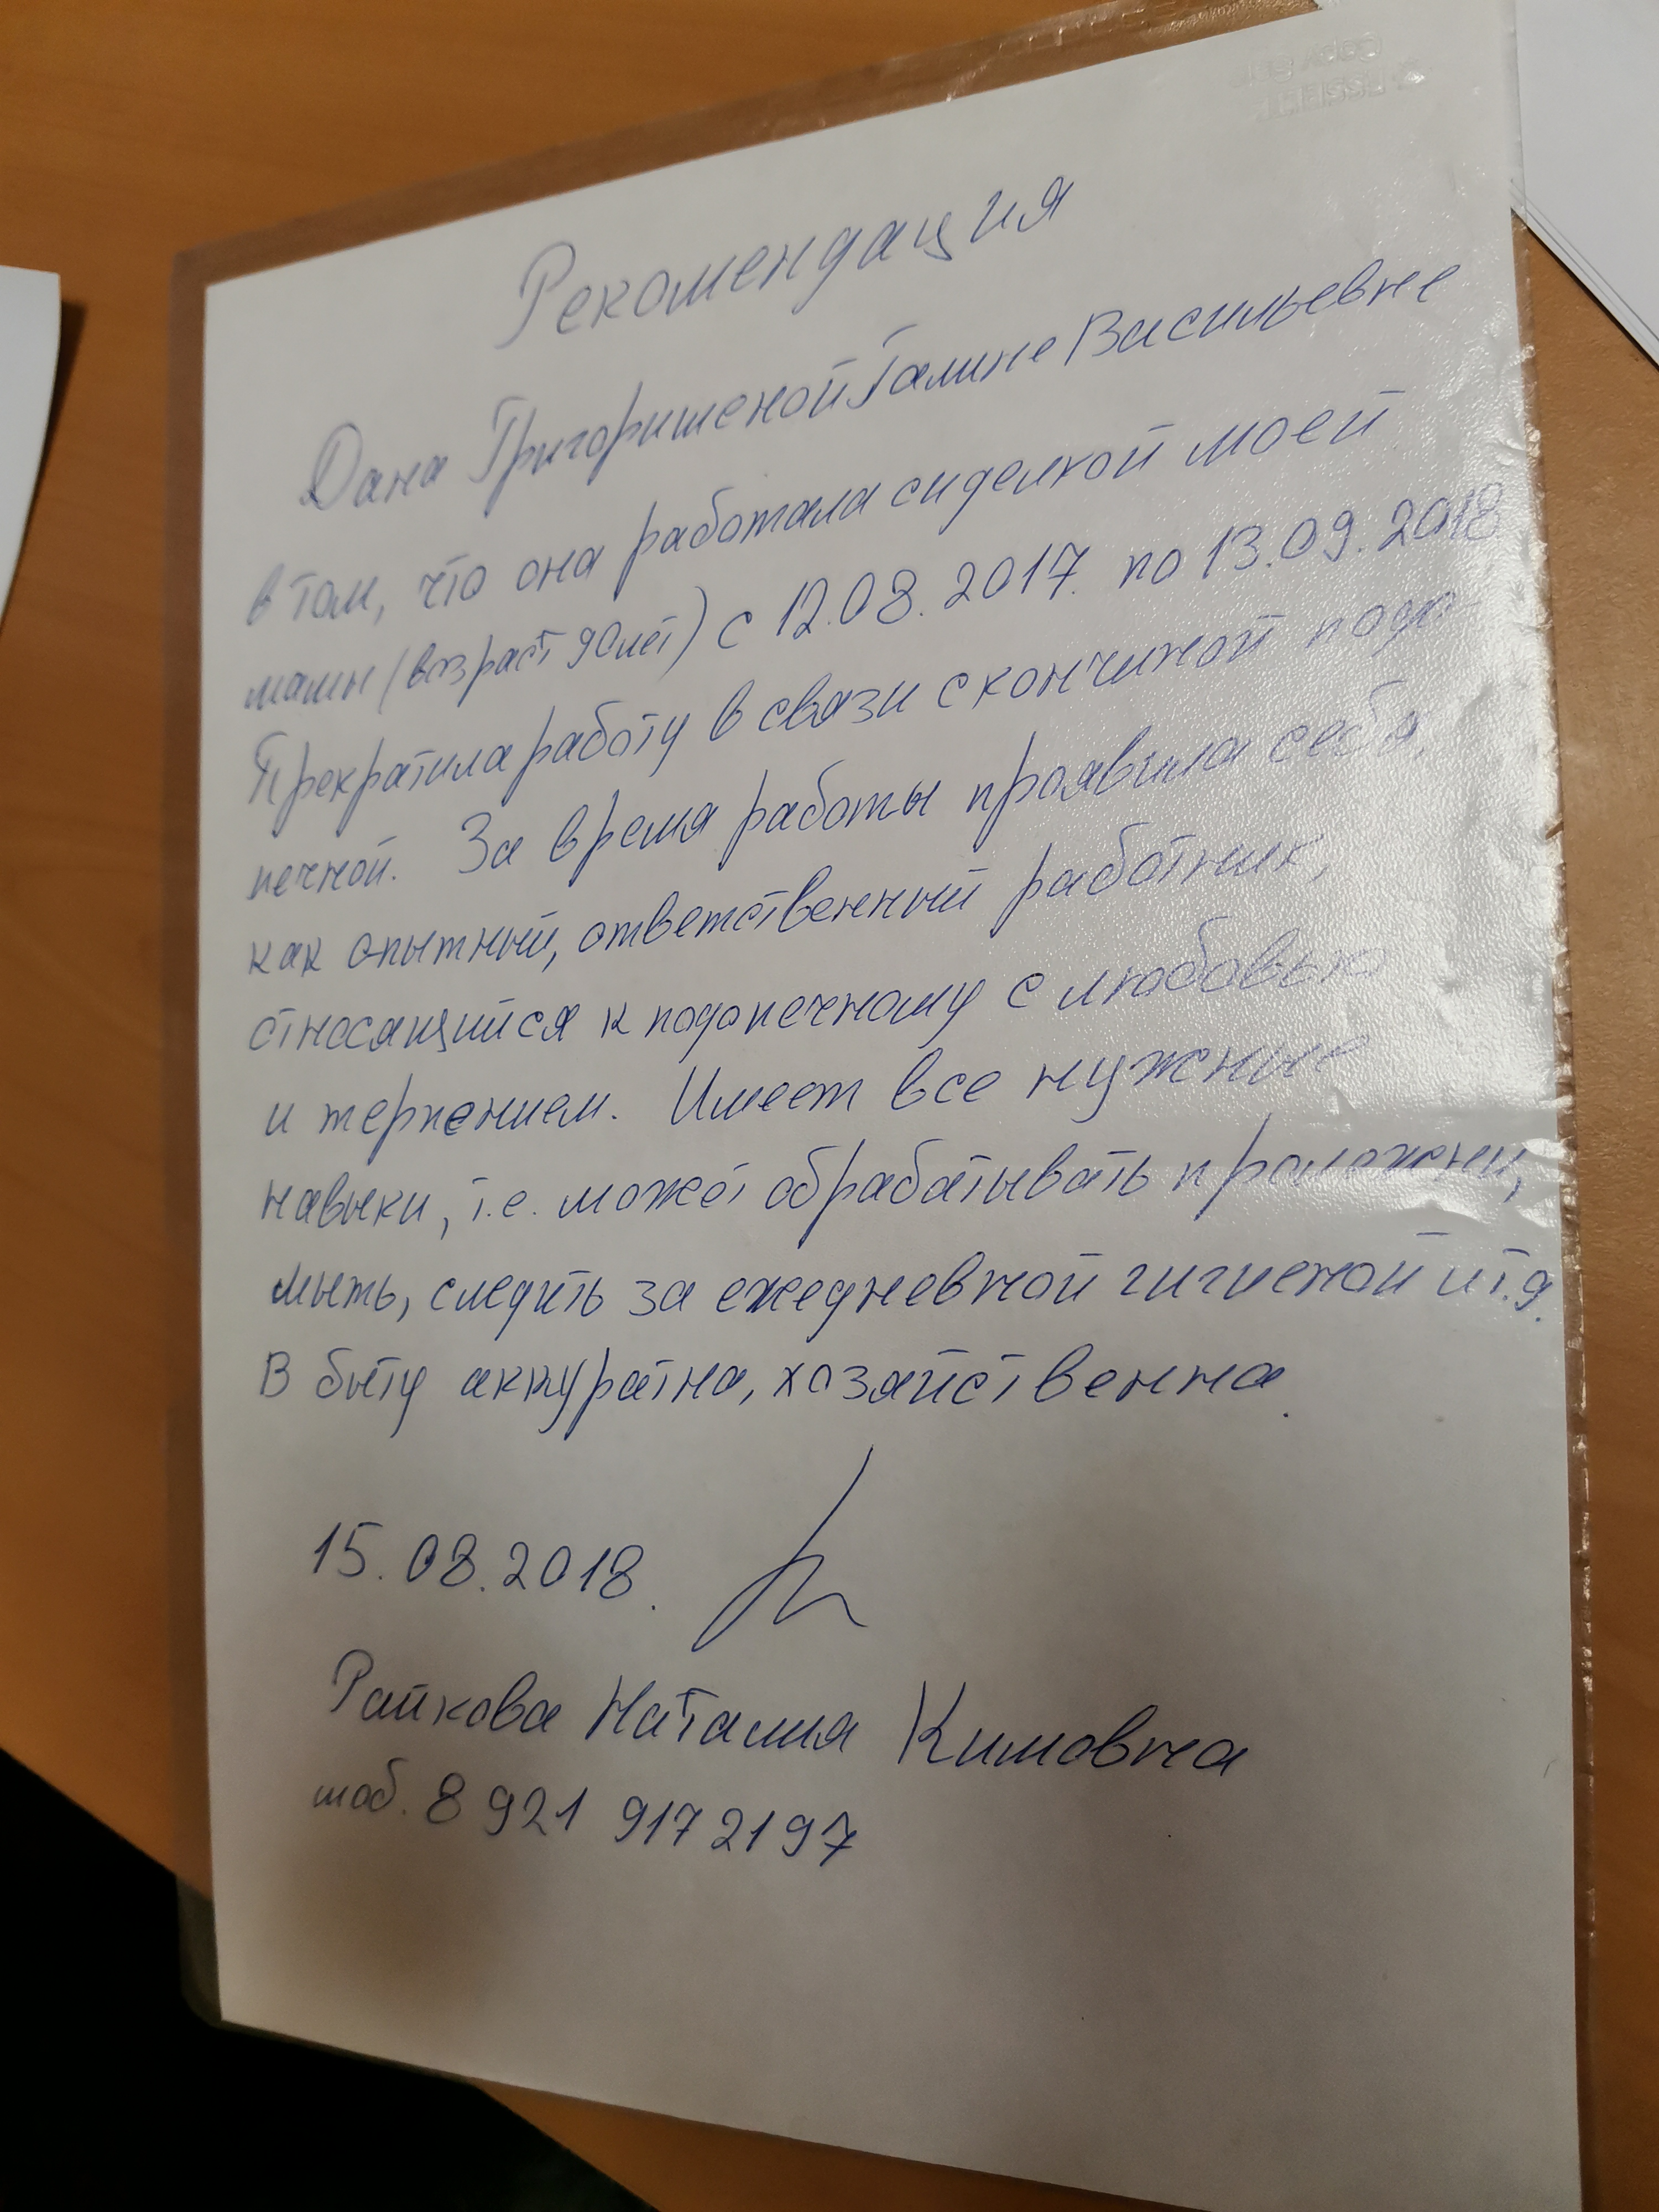 Рекомендация
Дана Григоришеной Галине Васильевне
в том, что она работала сиделкой моей
мамы (возраст 90 лет) с 12.08.2017. по 13.09.2018
Прекратила работу в связи с кончиной подо-
печной. За время работы проявила себя,
как опытный, ответственный работник,
относящийся к подопечному с любовью
и терпением. Имеет все нужные
навыки, т.е. может обрабатывать пролежни,
мыть, следить за ежедневной гигиеной и т.д.
В быту аккуратна, хозяйственна.
15.08.2018.
Райкова Наталия Кимовна
моб. 8 921 917 21 97